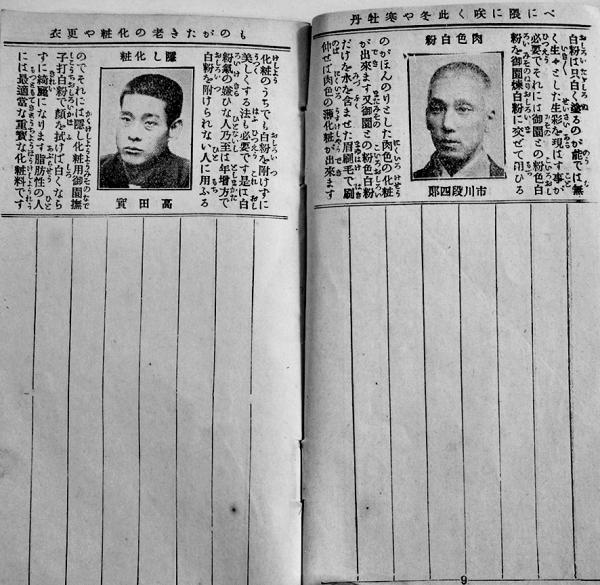 べに隈に咲く此冬や寒牡丹
肉色白粉
白粉は只白く塗るのが能では無
く生々とした生彩を現はす事が
必要でそれには御園との粉色白
粉を御園煉白粉に交ぜて用ひる
市川段四郎
のがほんのりとした肉色の化粧
が出來ます又御園との粉色白粉
だけを水を含ませた眉刷毛で刷
伸せば肉色の薄化粧が出來ます
9
ものがたき老の化粧や更衣
隱し化粧
化粧のうちでも白粉を附けずに
美しくする法も必要です是は白
粉氣の嫌ひな人乃至は年增方で
白粉を附けられない人に用ふる
高田實
のでそれには隱し化粧用御園撫
子打白粉で顏を拭けば白くなら
ずに綺麗になります脂肪性の人
には最適當な重寳な化粧料です